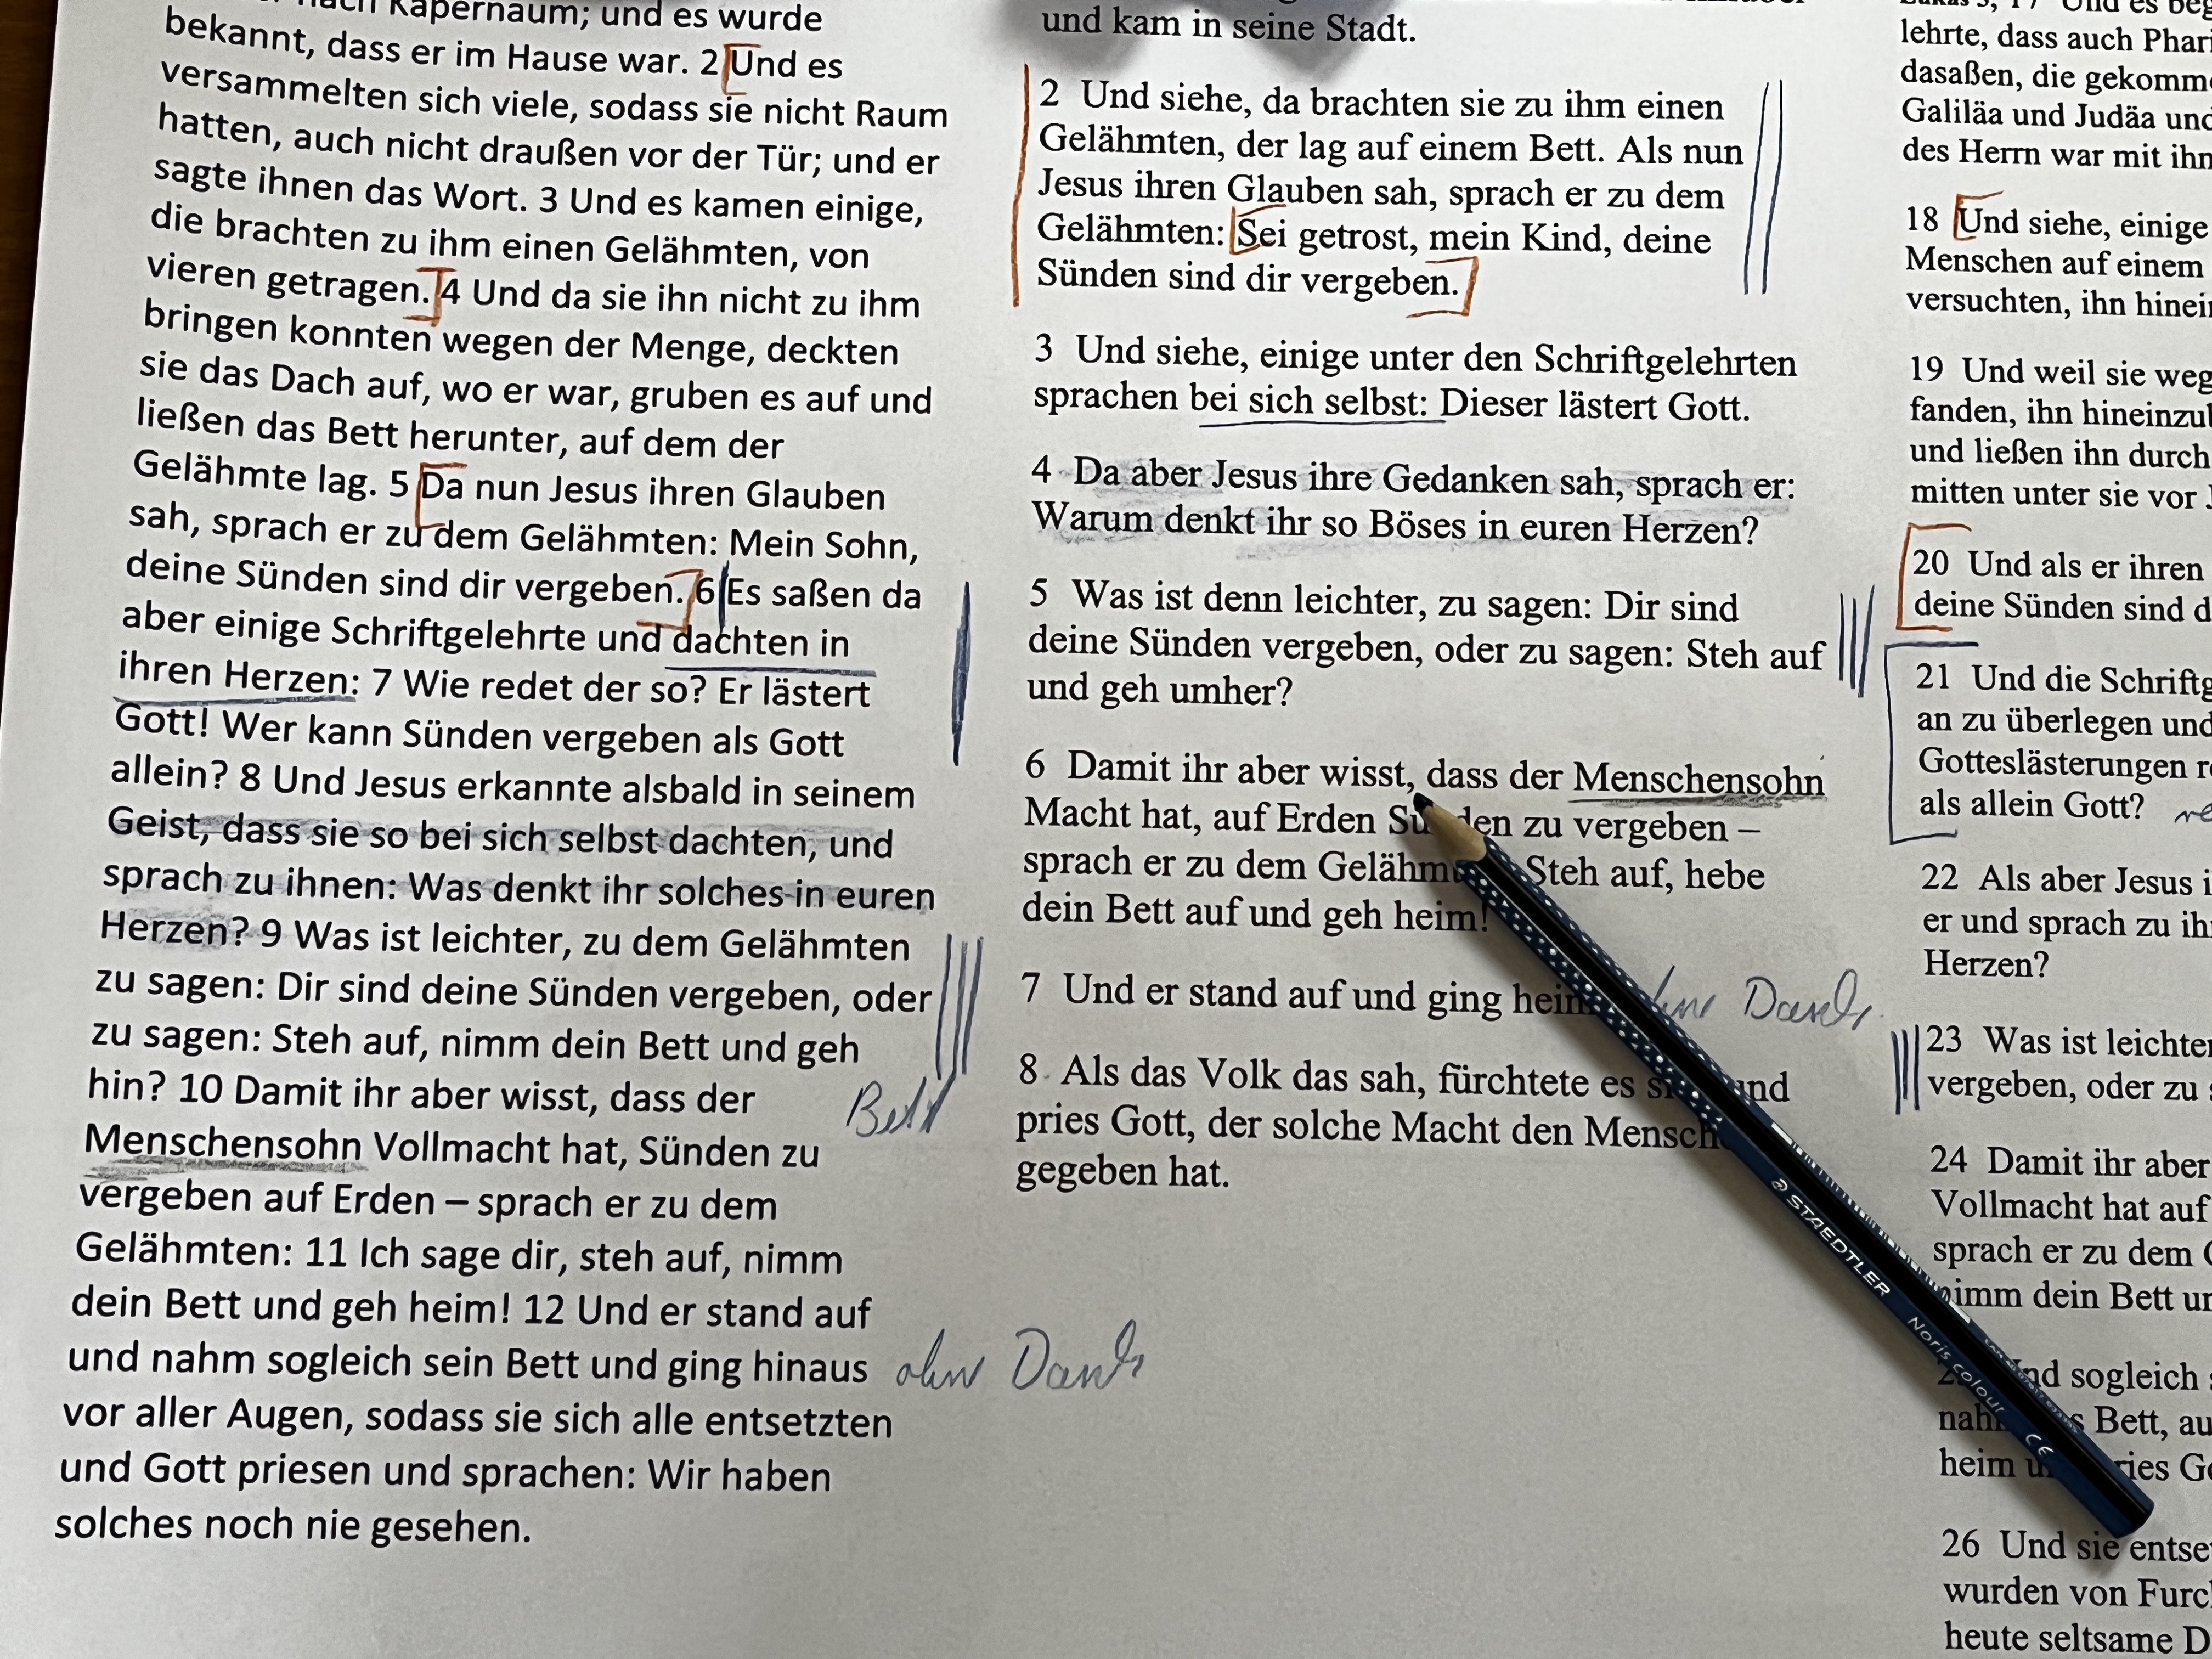 nach Kapernaum; und es wurde
bekannt, dass er im Hause war. 2 Und es
versammelten sich viele, sodass sie nicht Raum
hatten, auch nicht draußen vor der Tür; und er
sagte ihnen das Wort. 3 Und es kamen einige,
die brachten zu ihm einen Gelähmten, von
vieren getragen. 4 Und da sie ihn nicht zu ihm
bringen konnten wegen der Menge, deckten
sie das Dach auf, wo er war, gruben es auf und
ließen das Bett herunter, auf dem der
Gelähmte lag. 5 Da nun Jesus ihren Glauben
sah, sprach er zu dem Gelähmten: Mein Sohn,
deine Sünden sind dir vergeben. 6 Es saßen da
aber einige Schriftgelehrte und dachten in
ihren Herzen: 7 Wie redet der so? Er lästert
Gott! Wer kann Sünden vergeben als Gott
allein? 8 Und Jesus erkannte alsbald in seinem
Geist, dass sie so bei sich selbst dachten, und
sprach zu ihnen: Was denkt ihr solches in euren
Herzen? 9 Was ist leichter, zu dem Gelähmten
zu sagen: Dir sind deine Sünden vergeben, oder
zu sagen: Steh auf, nimm dein Bett und geh
hin? 10 Damit ihr aber wisst, dass der
Bett
Menschensohn Vollmacht hat, Sünden zu
vergeben auf Erden – sprach er zu dem
Gelähmten: 11 Ich sage dir, steh auf, nimm
dein Bett und geh heim! 12 Und er stand auf
und nahm sogleich sein Bett und ging hinaus ohne Dank
vor aller Augen, sodass sie sich alle entsetzten
und Gott priesen und sprachen: Wir haben
solches noch nie gesehen.
und kam in seine Stadt.
2 Und siehe, da brachten sie zu ihm einen
Gelähmten, der lag auf einem Bett. Als nun
Jesus ihren Glauben sah, sprach er zu dem
Gelähmten: Sei getrost, mein Kind, deine
Sünden sind dir vergeben.
3 Und siehe, einige unter den Schriftgelehrten
sprachen bei sich selbst: Dieser lästert Gott.
4 Da aber Jesus ihre Gedanken sah, sprach er:
Warum denkt ihr so Böses in euren Herzen?
5 Was ist denn leichter, zu sagen: Dir sind
deine Sünden vergeben, oder zu sagen: Steh auf
und geh umher?
6 Damit ihr aber wisst, dass der Menschensohn
Macht hat, auf Erden Sünden zu vergeben –
sprach er zu dem Gelähm Steh auf, hebe
dein Bett auf und geh heim!
7 Und er stand auf und ging heim Dank
8 Als das Volk das sah, fürchtete es und
pries Gott, der solche Macht den Mensch
gegeben hat.
Und es beg
lehrte, dass auch Phari
dasaßen, die gekomme
Galiläa und Judäa und
des Herrn war mit ihm
18 Und siehe, einige
Menschen auf einem
versuchten, ihn hinein
19 Und weil sie weg
fanden, ihn hineinzu
und ließen ihn durch
mitten unter sie vor J
20 Und als er ihren
deine Sünden sind d
21 Und die Schriftg
an zu überlegen und
Gotteslästerungen re
als allein Gott?
22 Als aber Jesus i
er und sprach zu ih
Herzen?
23 Was ist leichter
vergeben, oder zu s
24 Damit ihr aber
Vollmacht hat auf
sprach er zu dem G
nimm dein Bett un
Und sogleich
nah s Bett, au
heim u ries Go
26 Und sie entse
wurden von Furc
heute seltsame D
STAEDTLER Noris colour CE